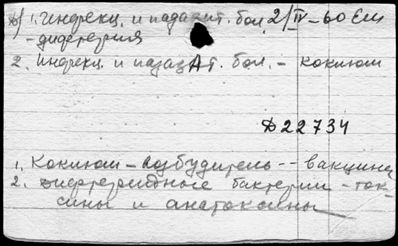 1. Инфекц. и паразит. бол. 2/IV-60 Ем
- дифтерия
2. Инфекц. и паразАт. бол. - коклюш
Д22734
1. Коклюш - возбудитель -- вакцине
2. Дифтероидные бактерии - ток-
сины и анатоксины